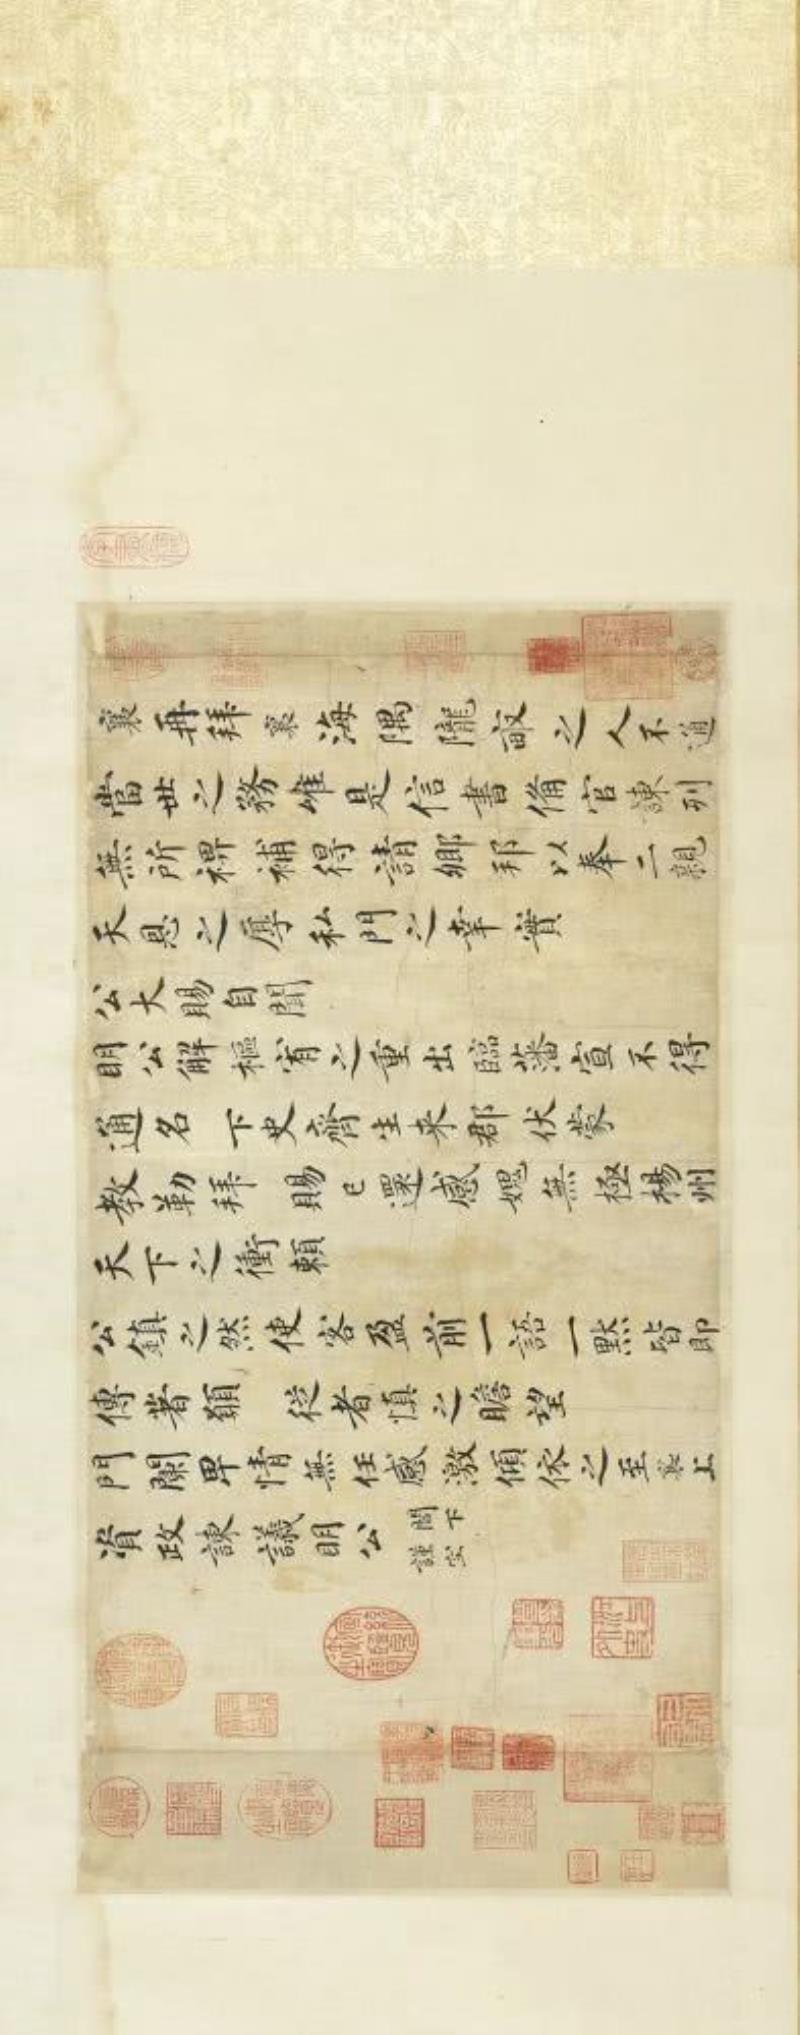 襄再拜襄海隅隴畝之人不通
當世之務唯是信書備官諫列
無所裨補得請鄉邦以奉二親
天恩之厚私門之幸實
公大賜自聞
明公解樞宥之重出臨藩宣不得
通名下史齊生来郡伏蒙
教勒拜賜已還感媿無極楊州
天下之衝賴
公鎮之然使客盈前一語一黙皆即
傳著願從者慎之瞻望
門闌卑情無任感激傾依之至襄上
資政諫議明公閤下
謹空